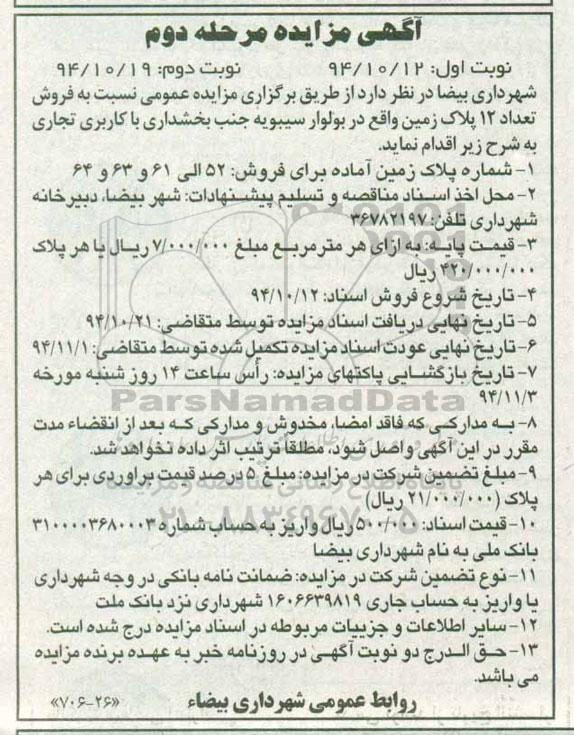 آگهی مزایده مرحله دوم
نوبت اول: ۹۴/۱۰/۱۲ نوبت دوم: ۹۴/۱۰/۱۹
شهرداری بیضا در نظر دارد از طریق برگزاری مزایده عمومی نسبت به فروش
تعداد ۱۲ پلاک زمین واقع در بولوار سیبویه جنب بخشداری با کاربری تجاری
به شرح زیر اقدام نماید.
۱- شماره پلاک زمین آماده برای فروش: ۵۲ الی ۶۱ و ۶۳ و ۶۴
۲- محل اخذ اسناد مناقصه و تسلیم پیشنهادات: شهر بیضا، دبیرخانه
شهرداری تلفن: ۳۶۷۸۲۱۹۷
۳- قیمت پایه: به ازای هر مترمربع مبلغ ۷/۰۰۰/۰۰۰ ریال یا هر پلاک
۴۲۰/۰۰۰/۰۰۰ ریال
۴- تاریخ شروع فروش اسناد: ۹۴/۱۰/۱۲
۵- تاریخ نهایی دریافت اسناد مزایده توسط متقاضی: ۹۴/۱۰/۲۱
۶- تاریخ نهایی عودت اسناد مزایده تکمیل شده توسط متقاضی: ۹۴/۱۱/۱
۷- تاریخ بازگشایی پاکتهای مزایده: رأس ساعت ۱۴ روز شنبه مورخه
۹۴/۱۱/۳
ParsNamadData
۸- به مدارکی که فاقد امضا، مخدوش و مدارکی که بعد از انقضاء مدت
مقرر در این آگهی واصل شود، مطلقا ترتیب اثر داده نخواهد شد.
۹- مبلغ تضمین شرکت در مزایده: مبلغ ۵ درصد قیمت براوردی برای هر
پلاک (۲۱/۰۰۰/۰۰۰ ریال)
۱۰- قیمت اسناد: ۵۰۰/۰۰۰ ریال واریز به حساب شماره ۳۱۰۰۰۰۳۶۸۰۰۰۳
بانک ملی به نام شهرداری بیضا
۱۱- نوع تضمین شرکت در مزایده: ضمانت نامه بانکی در وجه شهرداری
یا واریز به حساب جاری ۱۶۰۶۶۳۹۸۱۹ شهرداری نزد بانک ملت
۱۲- سایر اطلاعات و جزییات مربوطه در اسناد مزایده درج شده است.
۱۳- حق الدرج دو نوبت آگهی در روزنامه خبر به عهده برنده مزایده
می باشد.
روابط عمومی شهرداری بیضاء «۷۰۶-۲۶»